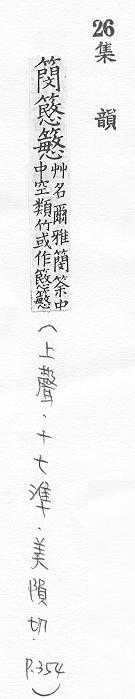 26集 韻
簢
艸名爾雅簢筡中
中空類竹或作
（上聲．十七準．美隕切．P.354）